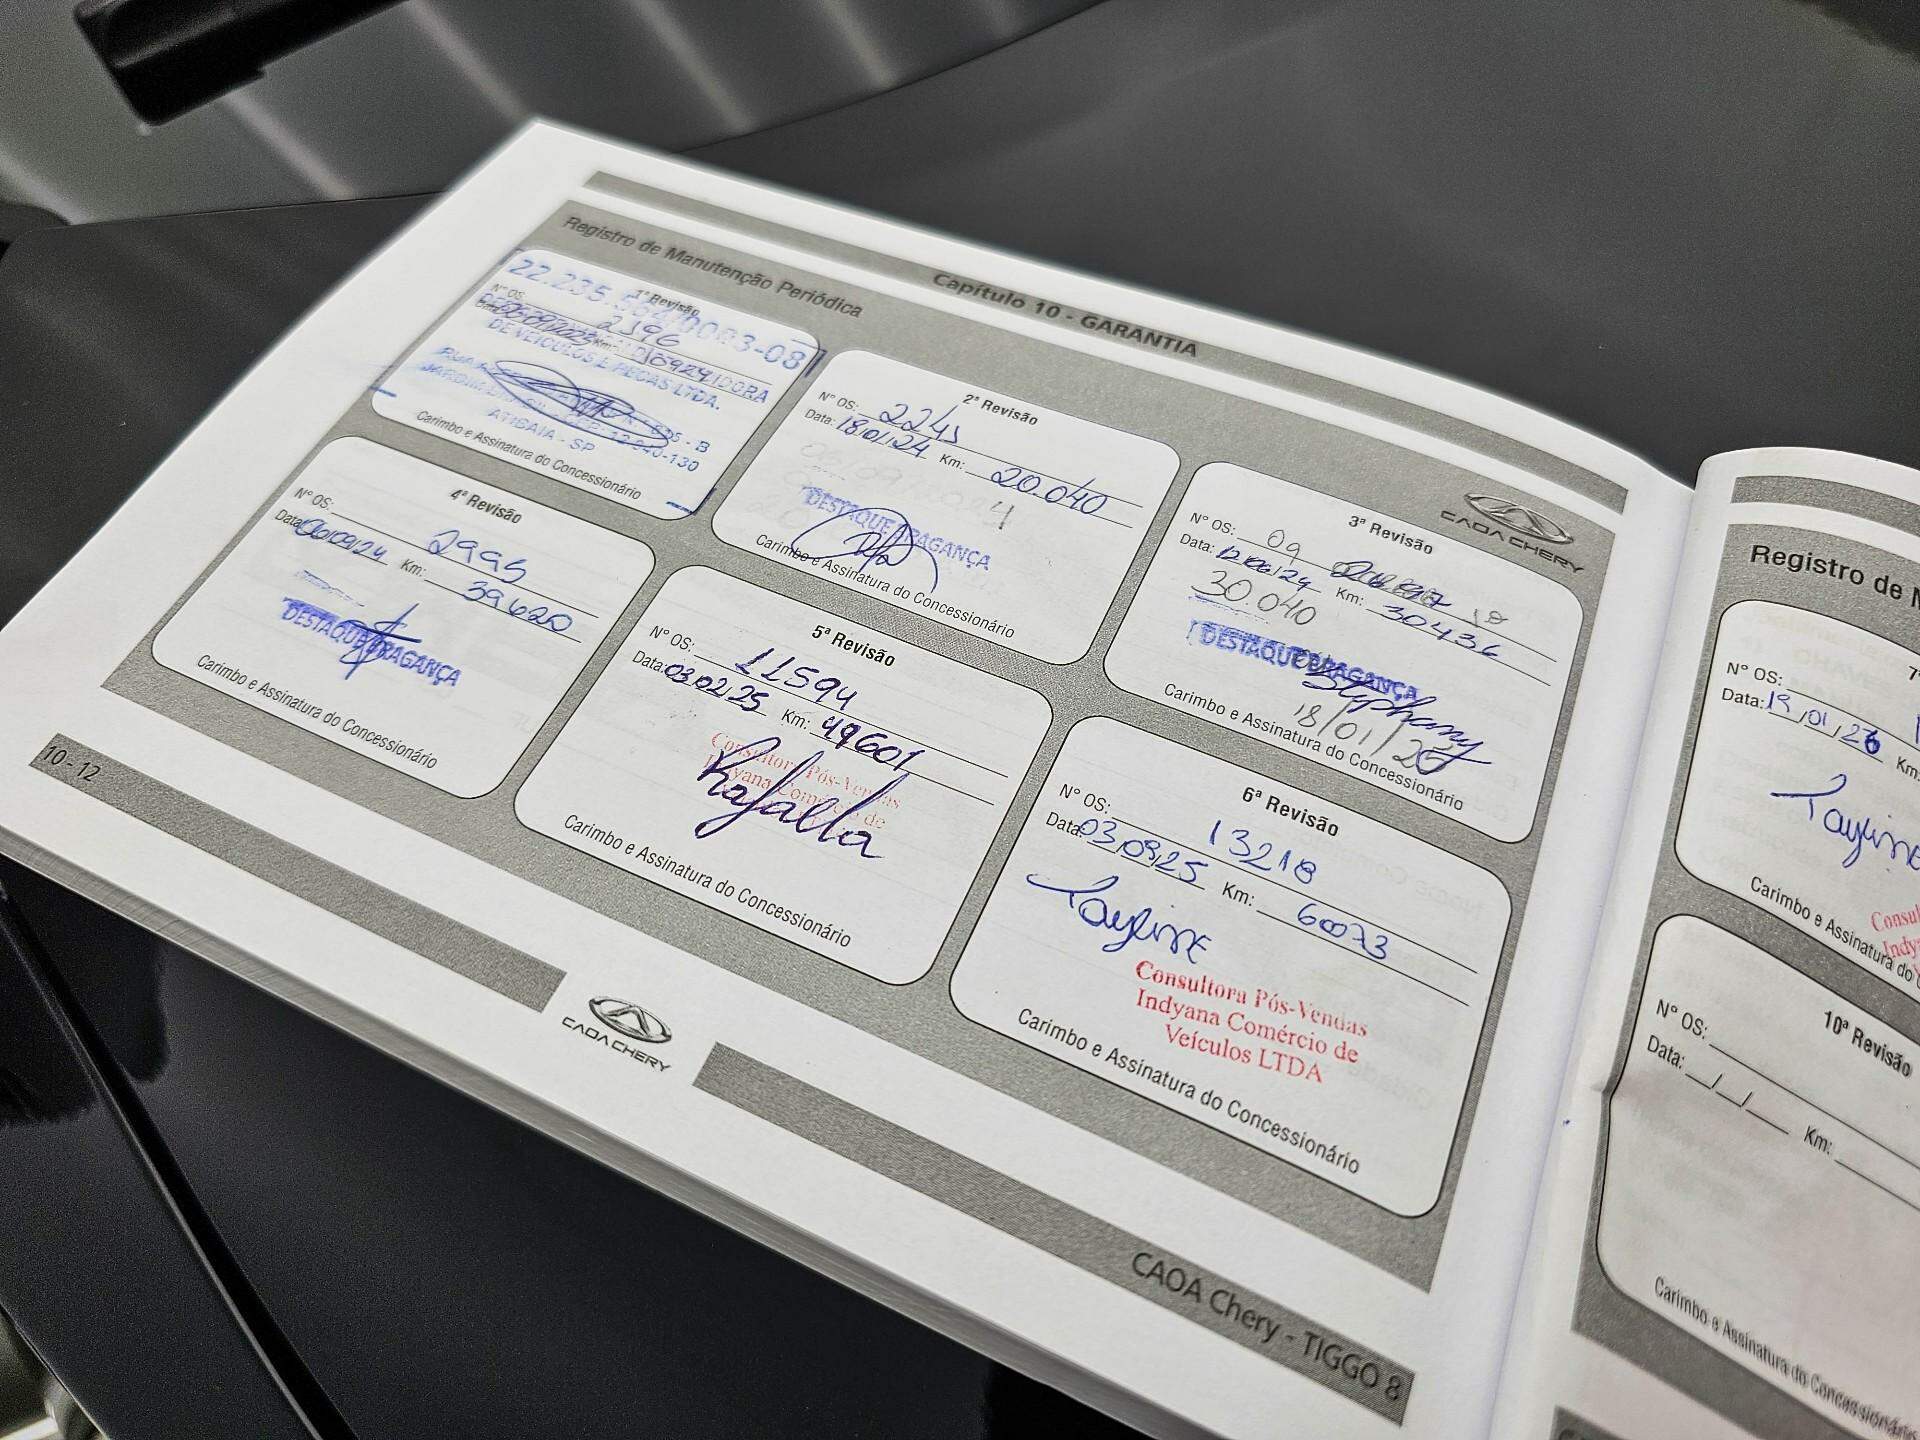 Capítulo 10 - GARANTIA
Registro de Manutenção Periódica
CAOA CHERY
1ª Revisão
22.235.
0003-08
Nº OS: 2396
Km:
DE VEICULOS E PECAS LTDA.
ATIBAIA - SP
Carimbo e Assinatura do Concessionário
2ª Revisão
Nº OS:
Data: 18/01/24 Km: 20.040
DESTAQUE BRAGANÇA
Carimbo e Assinatura do Concessionário
3ª Revisão
Nº OS: 09
Data: 12/06/24 Km: 30436
30.040
DESTAQUE BRAGANÇA
Stephany
18/01/
Carimbo e Assinatura do Concessionário
4ª Revisão
Nº OS: 2995
Data: 06/09/24 Km: 39620
DESTAQUE BRAGANÇA
Carimbo e Assinatura do Concessionário
5ª Revisão
Nº OS: 11594
Data: 03/02/25 Km: 49601
Consultora Pós-Vendas
Indyana Comércio de
Rafaella
Carimbo e Assinatura do Concessionário
6ª Revisão
Nº OS: 13218
Data: 03/09/25 Km: 60073
Tayline
Consultora Pós-Vendas
Indyana Comércio de
Veículos LTDA
Carimbo e Assinatura do Concessionário
10 - 12
CAOA CHERY
CAOA Chery - TIGGO 8
Registro de
Nº OS:
Data: 19/01/26 Km:
Tayline
Carimbo e Assinatura do
10ª Revisão
Nº OS:
Data: __/__/__ Km:
Carimbo e Assinatura do Concessionário